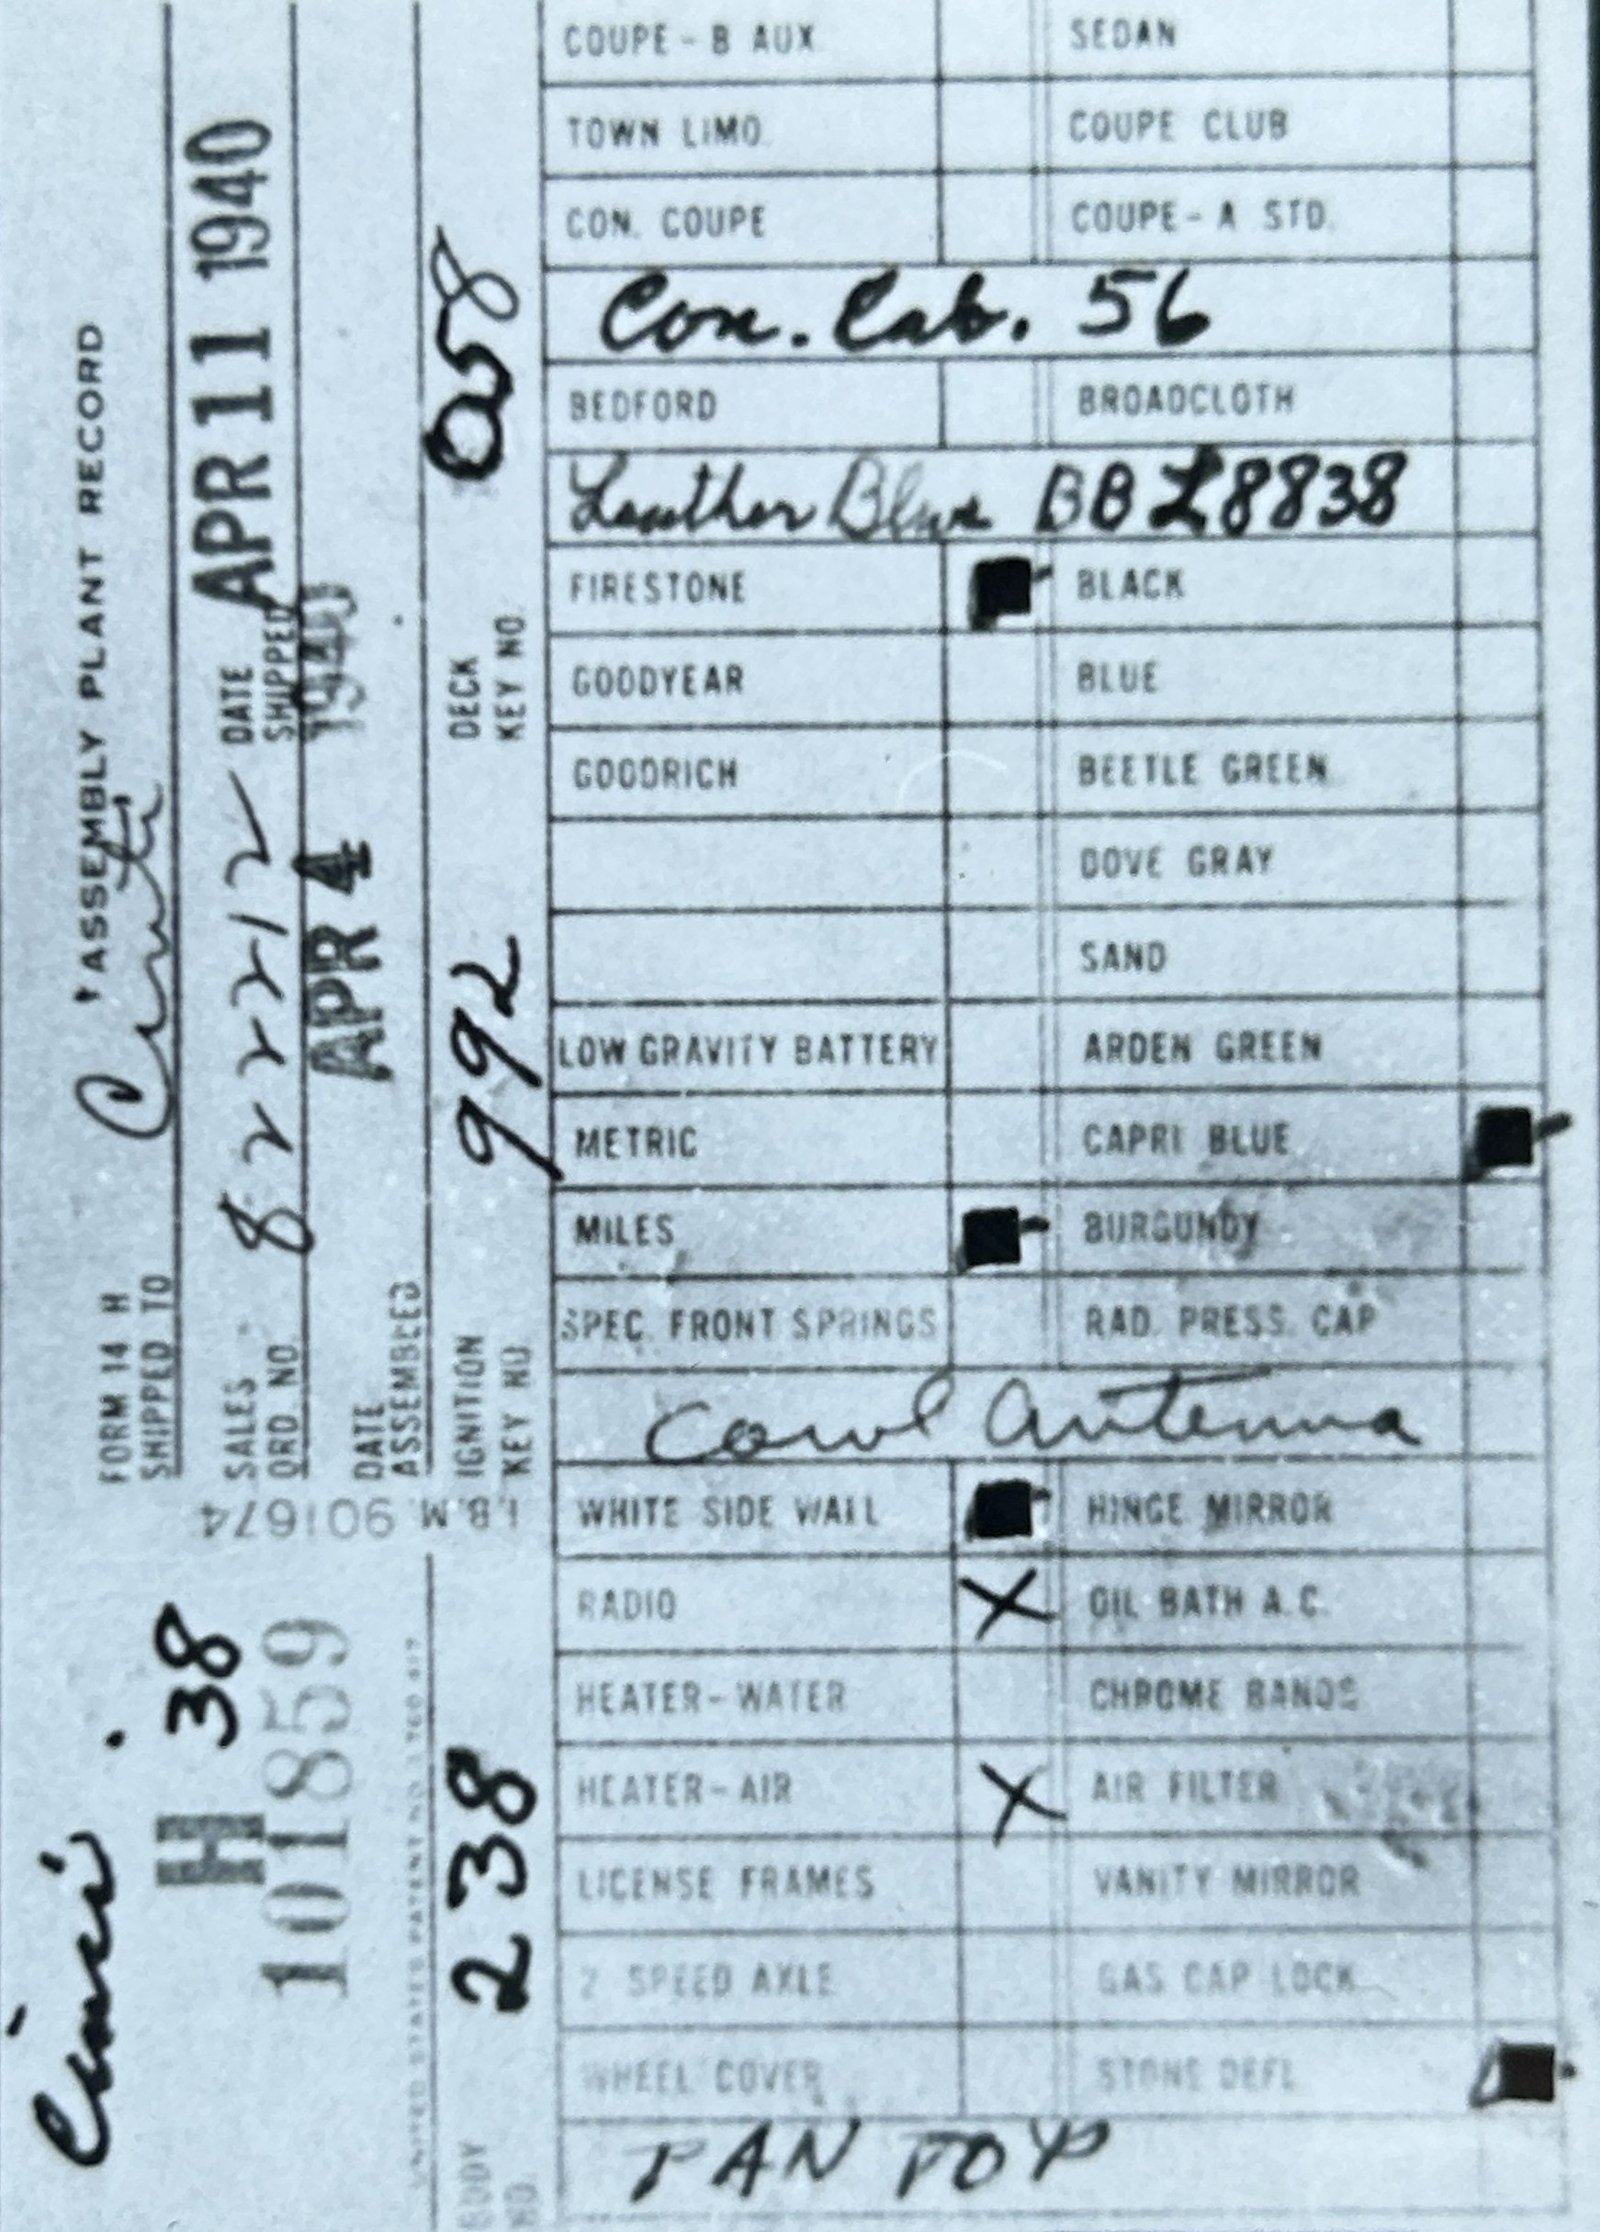 ASSEMBLY PLANT RECORD
FORM 14 H
SHIPPED TO Cinti
SALES ORD. NO. 822212
DATE SHIPPED APR 11 1940
DATE ASSEMBLED APR 4 1940
IGNITION KEY NO. 992
DECK KEY NO. 058
I.B.M. 901674
Cinci.
H 38
101859
UNITED STATES PATENT NO. 1,780,617
BODY NO. 238
COUPE - B AUX. SEDAN
TOWN LIMO. COUPE CLUB
CON. COUPE COUPE - A STD.
Con. Cab. 56
BEDFORD BROADCLOTH
Leather Blue BB L8838
FIRESTONE BLACK
GOODYEAR BLUE
GOODRICH BEETLE GREEN
DOVE GRAY
SAND
LOW GRAVITY BATTERY ARDEN GREEN
METRIC CAPRI BLUE
MILES BURGUNDY
SPEC. FRONT SPRINGS RAD. PRESS. CAP
Cowl Antenna
WHITE SIDE WALL HINGE MIRROR
RADIO X OIL BATH A.C.
HEATER - WATER CHROME BANDS
HEATER - AIR X AIR FILTER
LICENSE FRAMES VANITY MIRROR
2 SPEED AXLE GAS CAP LOCK
WHEEL COVER STONE DEFL.
TAN TOP